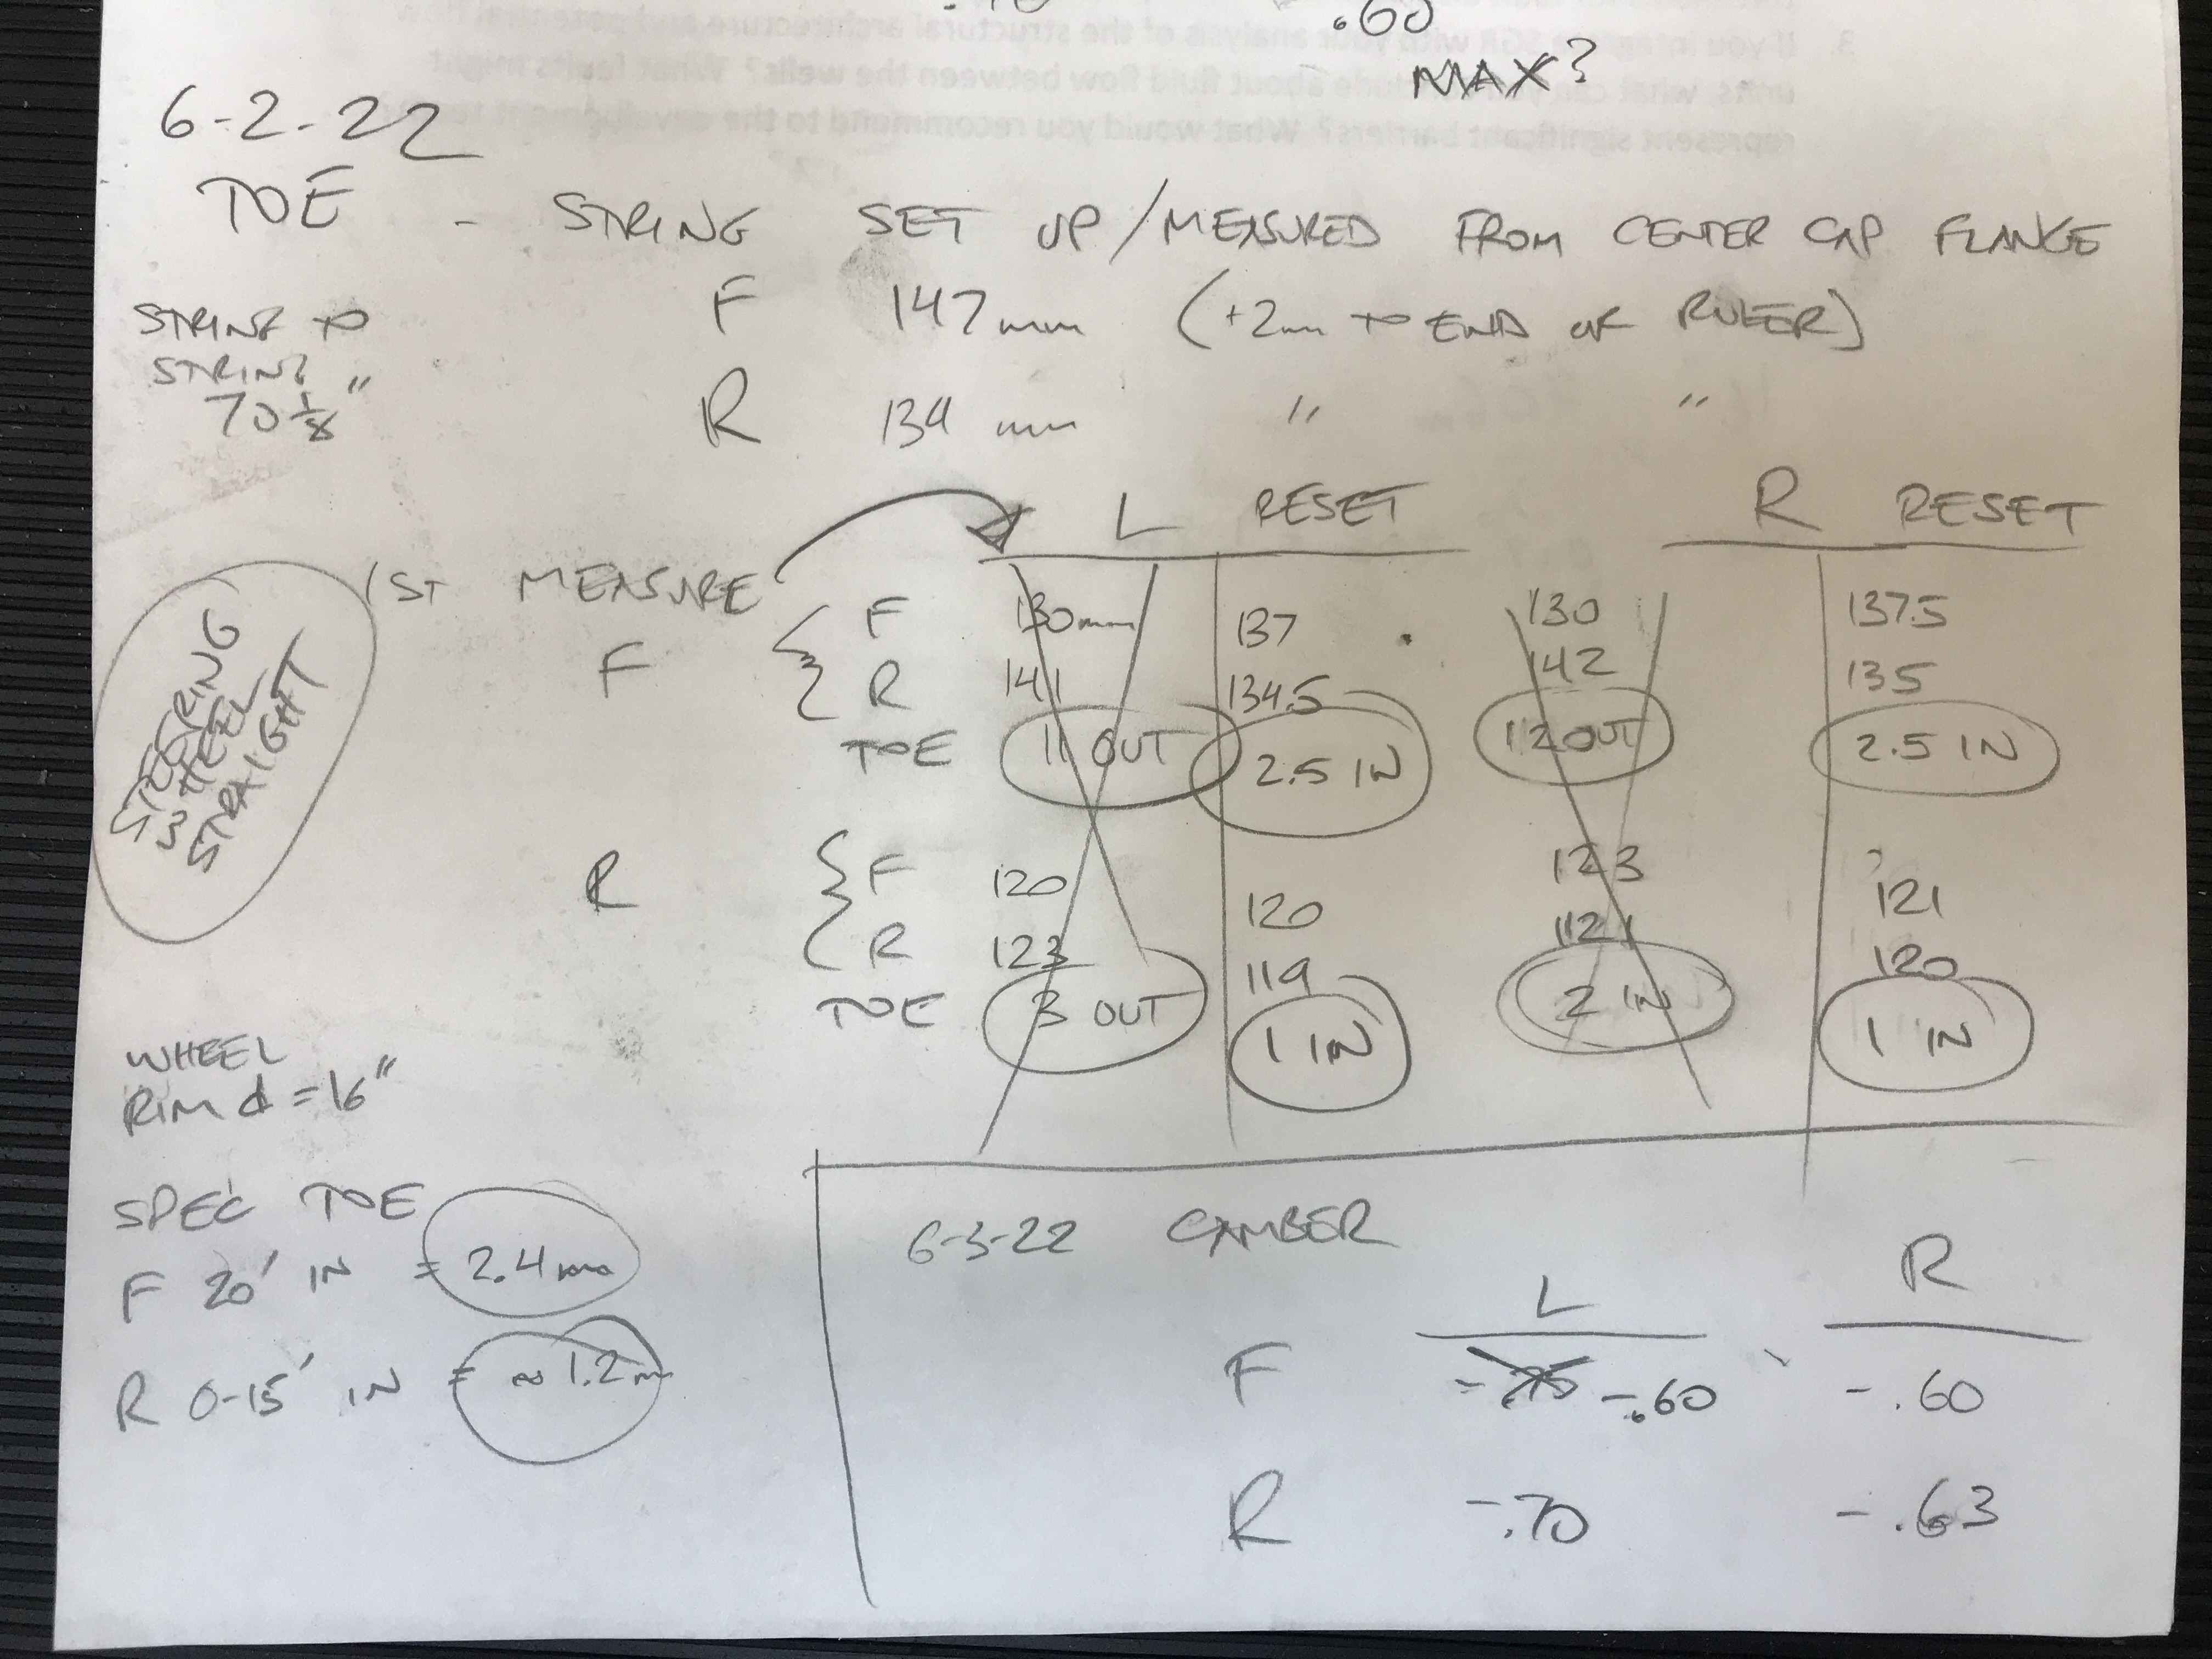 .60
MAX?
6-2-22
TOE - STRING SET UP/MEASURED FROM CENTER CAP FLANGE
STRING TO
STRING
70 1/8"
F 147mm (+2mm TO END OF RULER)
R 134 mm " "
L RESET R RESET
1ST MEASURE
STEERING
WHEEL
STRAIGHT
F
F 130mm 137 130 137.5
R 141 134.5 142 135
TOE 11 OUT 2.5 IN 12 OUT 2.5 IN
R
F 120 120 123 121
R 123 119 121 120
TOE 3 OUT 1 IN 2 IN 1 IN
WHEEL
RIM d = 16"
SPEC TOE
F 20' IN = 2.4mm
R 0-15' IN = ≈ 1.2m
6-3-22 CAMBER
L R
F -.75 -.60 -.60
R -.70 -.63